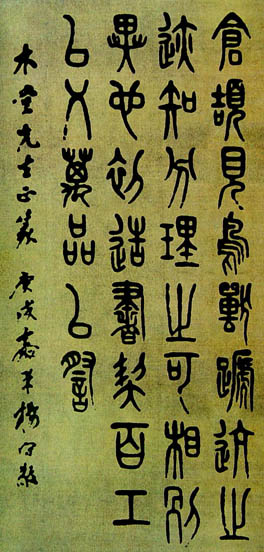 倉頡見鳥獸蹏迒之
迹知分理之可相別
異也初造書契百工
㠯乂萬品㠯詧
木堂先生正篆 庚戌嘉平楊守敬